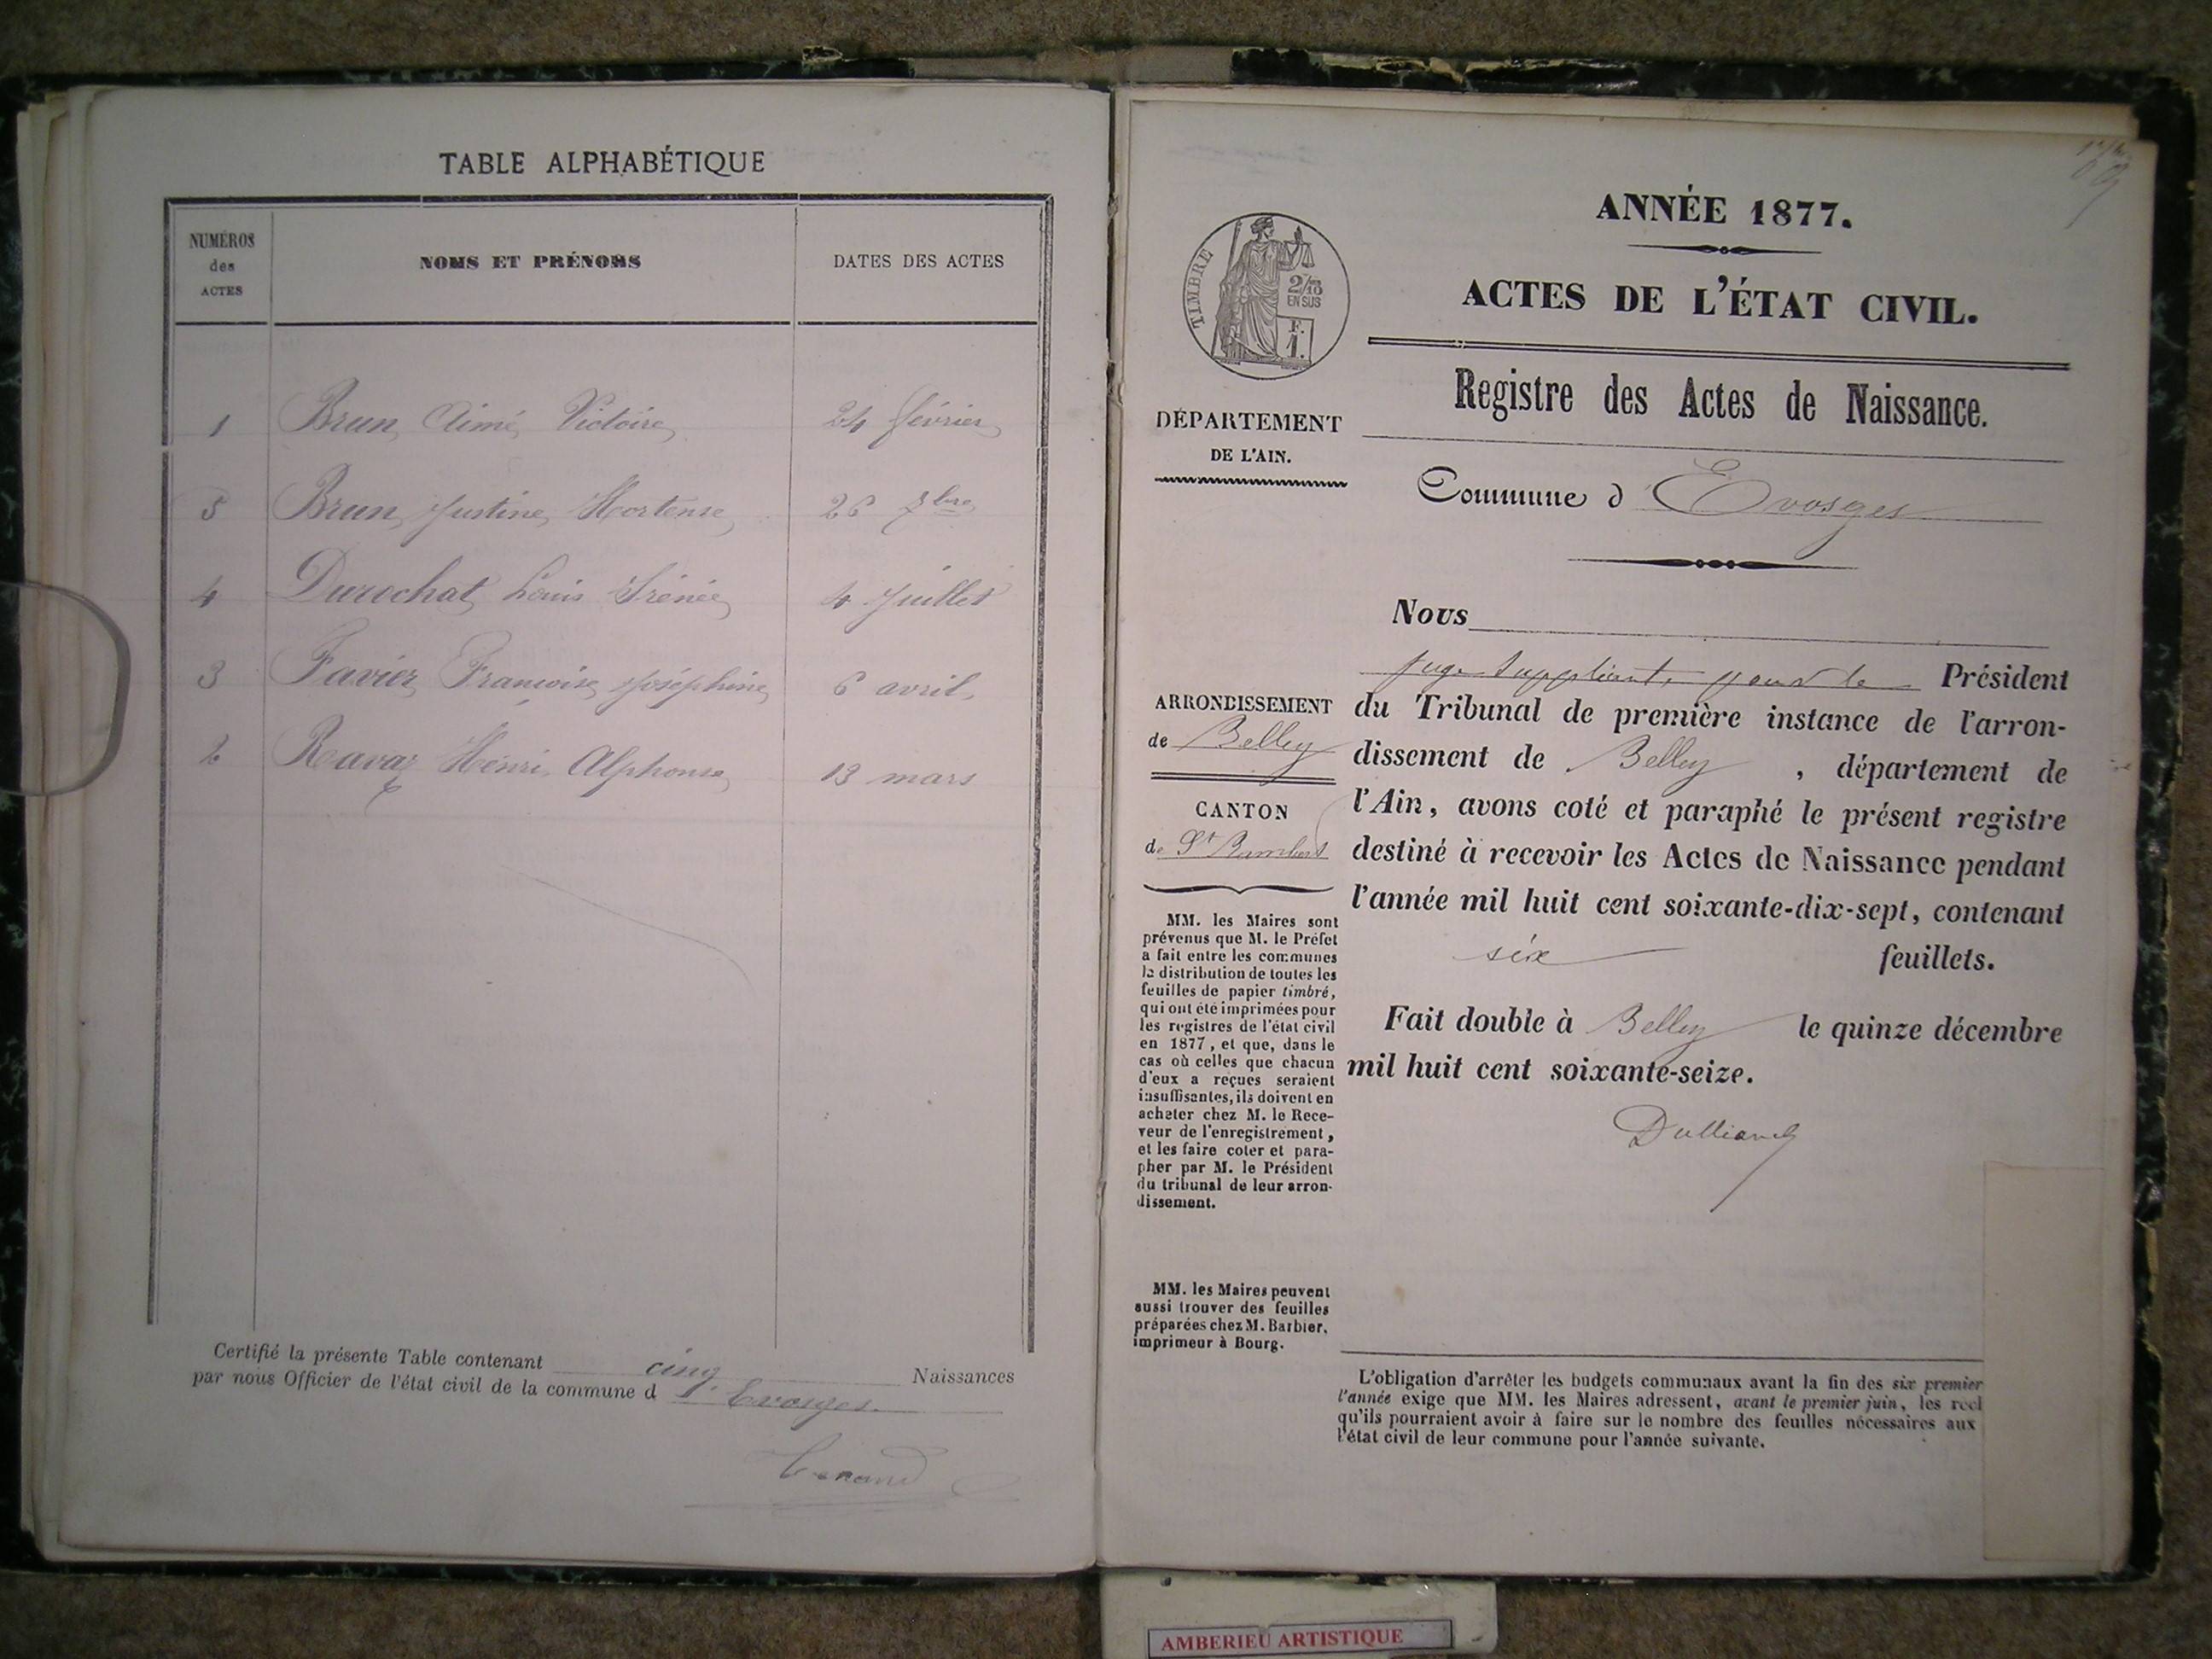 TABLE ALPHABÉTIQUE
NUMÉROS
des
ACTES
NOMS ET PRÉNOMS
DATES DES ACTES
1 Brun Aimé Victoire 24 février
5 Brun Justine Hortense 26 7bre
4 Durochat Louis Irénée 4 Juillet
3 Favier Françoise Joséphine 6 avril
2 Ravaz Henri Alphonse 13 mars
Certifié la présente Table contenant cinq Naissances
par nous Officier de l'état civil de la commune d'Evosges.
ANNÉE 1877.
ACTES DE L'ÉTAT CIVIL.
TIMBRE
2/10
EN SUS
F.
1.
Registre des Actes de Naissance.
DÉPARTEMENT
DE L'AIN.
Commune d'Evosges
ARRONDISSEMENT
de Belley
CANTON
de St Rambert
MM. les Maires sont
prévenus que M. le Préfet
a fait entre les communes
la distribution de toutes les
feuilles de papier timbré,
qui ont été imprimées pour
les registres de l'état civil
en 1877, et que, dans le
cas où celles que chacun
d'eux a reçues seraient
insuffisantes, ils doivent en
acheter chez M. le Rece-
veur de l'enregistrement,
et les faire coter et para-
pher par M. le Président
du tribunal de leur arron-
dissement.
MM. les Maires peuvent
aussi trouver des feuilles
préparées chez M. Barbier,
imprimeur à Bourg.
Nous
Juge Suppléant, pour le Président
du Tribunal de première instance de l'arron-
dissement de Belley, département de
l'Ain, avons coté et paraphé le présent registre
destiné à recevoir les Actes de Naissance pendant
l'année mil huit cent soixante-dix-sept, contenant
six feuillets.
Fait double à Belley le quinze décembre
mil huit cent soixante-seize.
L'obligation d'arrêter les budgets communaux avant la fin des six premier
l'année exige que MM. les Maires adressent, avant le premier juin, les recl
qu'ils pourraient avoir à faire sur le nombre des feuilles nécessaires aux
l'état civil de leur commune pour l'année suivante.
AMBERIEU ARTISTIQUE